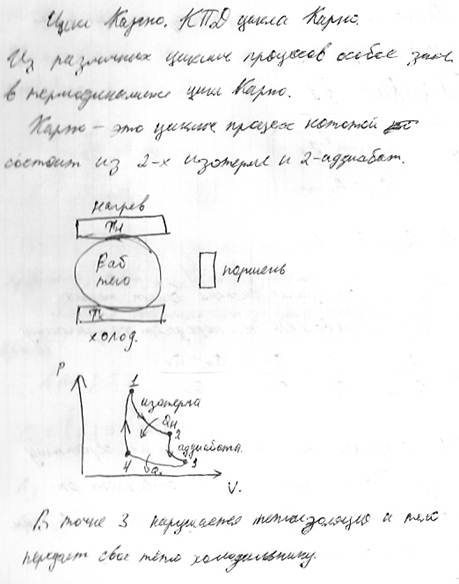 Цикл Карно. КПД цикла Карно.
Из различных циклич процессов особое зан.
в термодинамике цикл Карно.
Карно – это циклич процесс который
состоит из 2-х изотерм и 2-адиабат.
нагрев
Тн
Раб
тело
поршень
Тх
холод.
P
1
изотерма
Qн
2
адиабата.
4
3
V.
В точке 3 нарушается теплоизоляция и тело
передает свое тепло холодильнику.